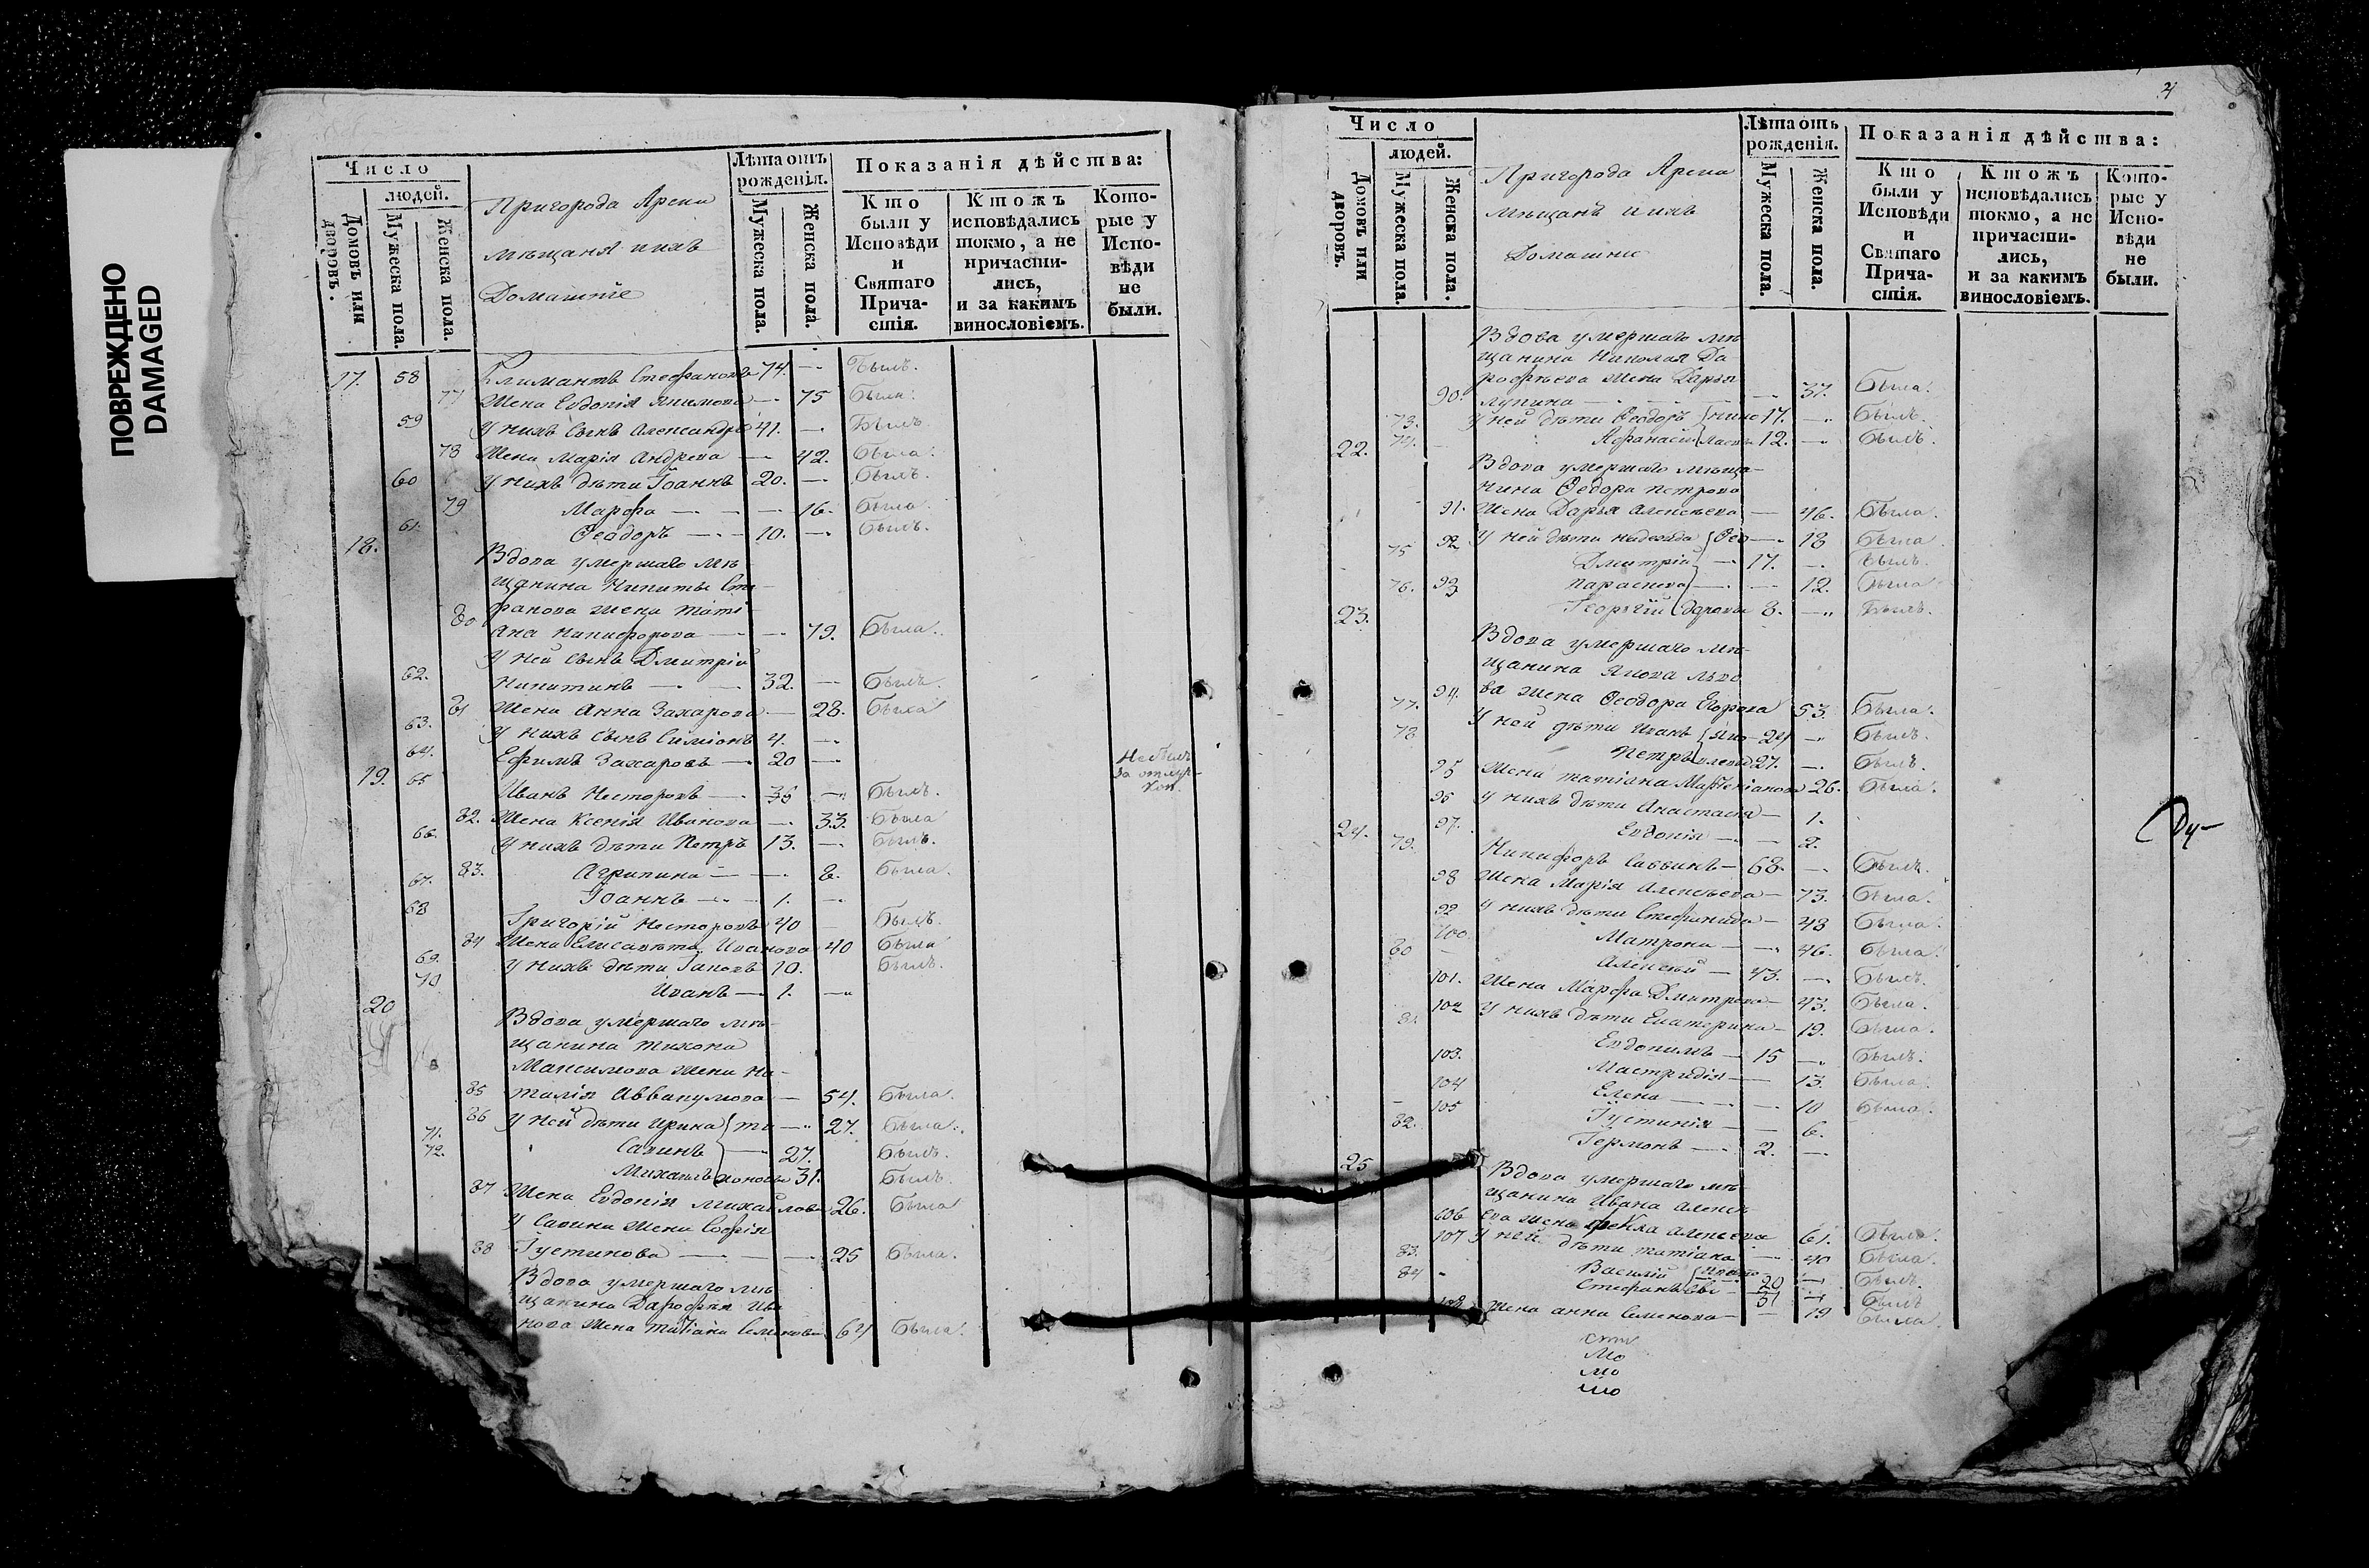 ПОВРЕЖДЕНО
DAMAGED
Число
людей.
Домовъ или дворовъ.
Мужеска пола.
Женска пола.
Пригорода Арска
мѣщаня ихъ
Домашніе
Лѣта отъ рожденія.
Мужеска пола.
Женска пола.
Показанія дѣйства:
Кто были у Исповѣди и Святаго Причастія.
Ктожъ исповѣдались токмо, а не причастились, и за какимъ винословіемъ.
Которые у Исповѣди не были.
17. 58 Климантъ Стефановъ 74. — Былъ.
77 Жена Евдокія Якимова — 75 Была.
59 У нихъ сынъ Александръ 41. — Былъ.
78 Жена Марія Андрева — 42. Была.
60 У нихъ дѣти Іоаннъ 20. — Былъ.
79 Марфа — 16. Была.
61. Ѳеодоръ — 10. — Былъ.
18. Вдова умершаго мѣ-
щанина Никиты Сте-
фанова жена Тати-
80 яна Никифорова — 79. Была.
У ней сынъ Дмитрій
62. Никитинъ — 32. — Былъ.
81 Жена Анна Захарова — 28. Была
63. У нихъ сынъ Симіонъ 4. —
64. Ефимъ Захаровъ — 20 — Не былъ
за отлуч-
кой.
19. 65 Иванъ Несторовъ — 35 — Былъ.
82. Жена Ксенія Иванова — 33. Была
66. У нихъ дѣти Петръ 13. — Былъ.
83. Агрипина — 8. Была.
67. Іоаннъ — 1. —
68 Григорій Несторовъ 40 Былъ.
84 Жена Елисавѣта Иванова 40 Была
69. У нихъ дѣти Іаковъ 10. Былъ.
70 Иванъ — 1. —
20 Вдова умершаго мѣ-
щанина Тихона
Максимова жена На-
85 талія Аввакумова — 54. Была.
86 У ней дѣти Ирина { ти — 27. Была.
71. Савинъ — 27. Былъ.
72. Михаилъ хоновы 31. Былъ.
87 Жена Евдокія Михайлова 26. Была
У Савина жена Софія
88 Густинова — 25 Была.
Вдова умершаго мѣ-
щанина Дарофея Ива-
нова жена Татіана Семенова 64 Была.
Число
людей.
Домовъ или дворовъ.
Мужеска пола.
Женска пола.
Пригорода Арска
мѣщанъ ихъ
Домашни
Лѣта отъ рожденія.
Мужеска пола.
Женска пола.
Показанія дѣйства:
Кто были у Исповѣди и Святаго Причастія.
Ктожъ исповѣдались токмо, а не причастились, и за какимъ винословіемъ.
Которые у Исповѣди не были.
Вдова умершаго мѣ-
щанина Николая Да-
рофѣева жена Дарья
90. Лупина — 37. Была.
73. У ней дѣти Ѳеодоръ { нико 17. — Былъ.
74. Афанасій { лаевы 12. — Былъ.
22. Вдова умершаго мѣща-
нина Ѳедора Петрова
91. Жена Дарья Алексѣева — 46. Была.
92 У ней дѣти Надежда { Ѳео — 18 Была
75 Дмитрій — 17. — Былъ.
93 Параскева — 12. Была
76. Георгій { доровы 8. — Былъ.
23. Вдова умершаго мѣ-
щанина Якова Льво-
94. ва жена Ѳеодора Егорова 53. Была.
77. У ней дѣти Иванъ { Яко 24 — Былъ.
78 Петръ влевы 27. — Былъ.
95 Жена Татіана Марʼкіанова 26. Была.
96 У нихъ дѣти Анастасія — 1.
97. Евдокія — 2.
24. 79. Никифоръ Саввинъ — 68. — Былъ.
98 Жена Марія Алексѣева — 73. Была.
99 У нихъ дѣти Стефанида — 48 Была.
100. Матрона — 46. Была.
80 Алексѣй — 43. — Былъ.
101. Жена Марфа Дмитрева — 43. Была.
102 У нихъ дѣти Екатерина — 19. Была.
81. Евдокимъ — 15 — Былъ.
103. Мастридія — 13. Была.
104 Елена — 10 Была.
105 Густинія — 6.
82. Гермонъ — 2. —
25 Вдова умершаго мѣ-
щанина Ивана Алексѣ-
106 ева жена Ѳекла Алексева 61. Была.
107 У ней дѣти Татіана — 40 Была.
83. Василій { Ивано 20 — Былъ.
84 Стефанъ 31 — Былъ
108 Жена Анна Семенова — 19 Была.
Ду-